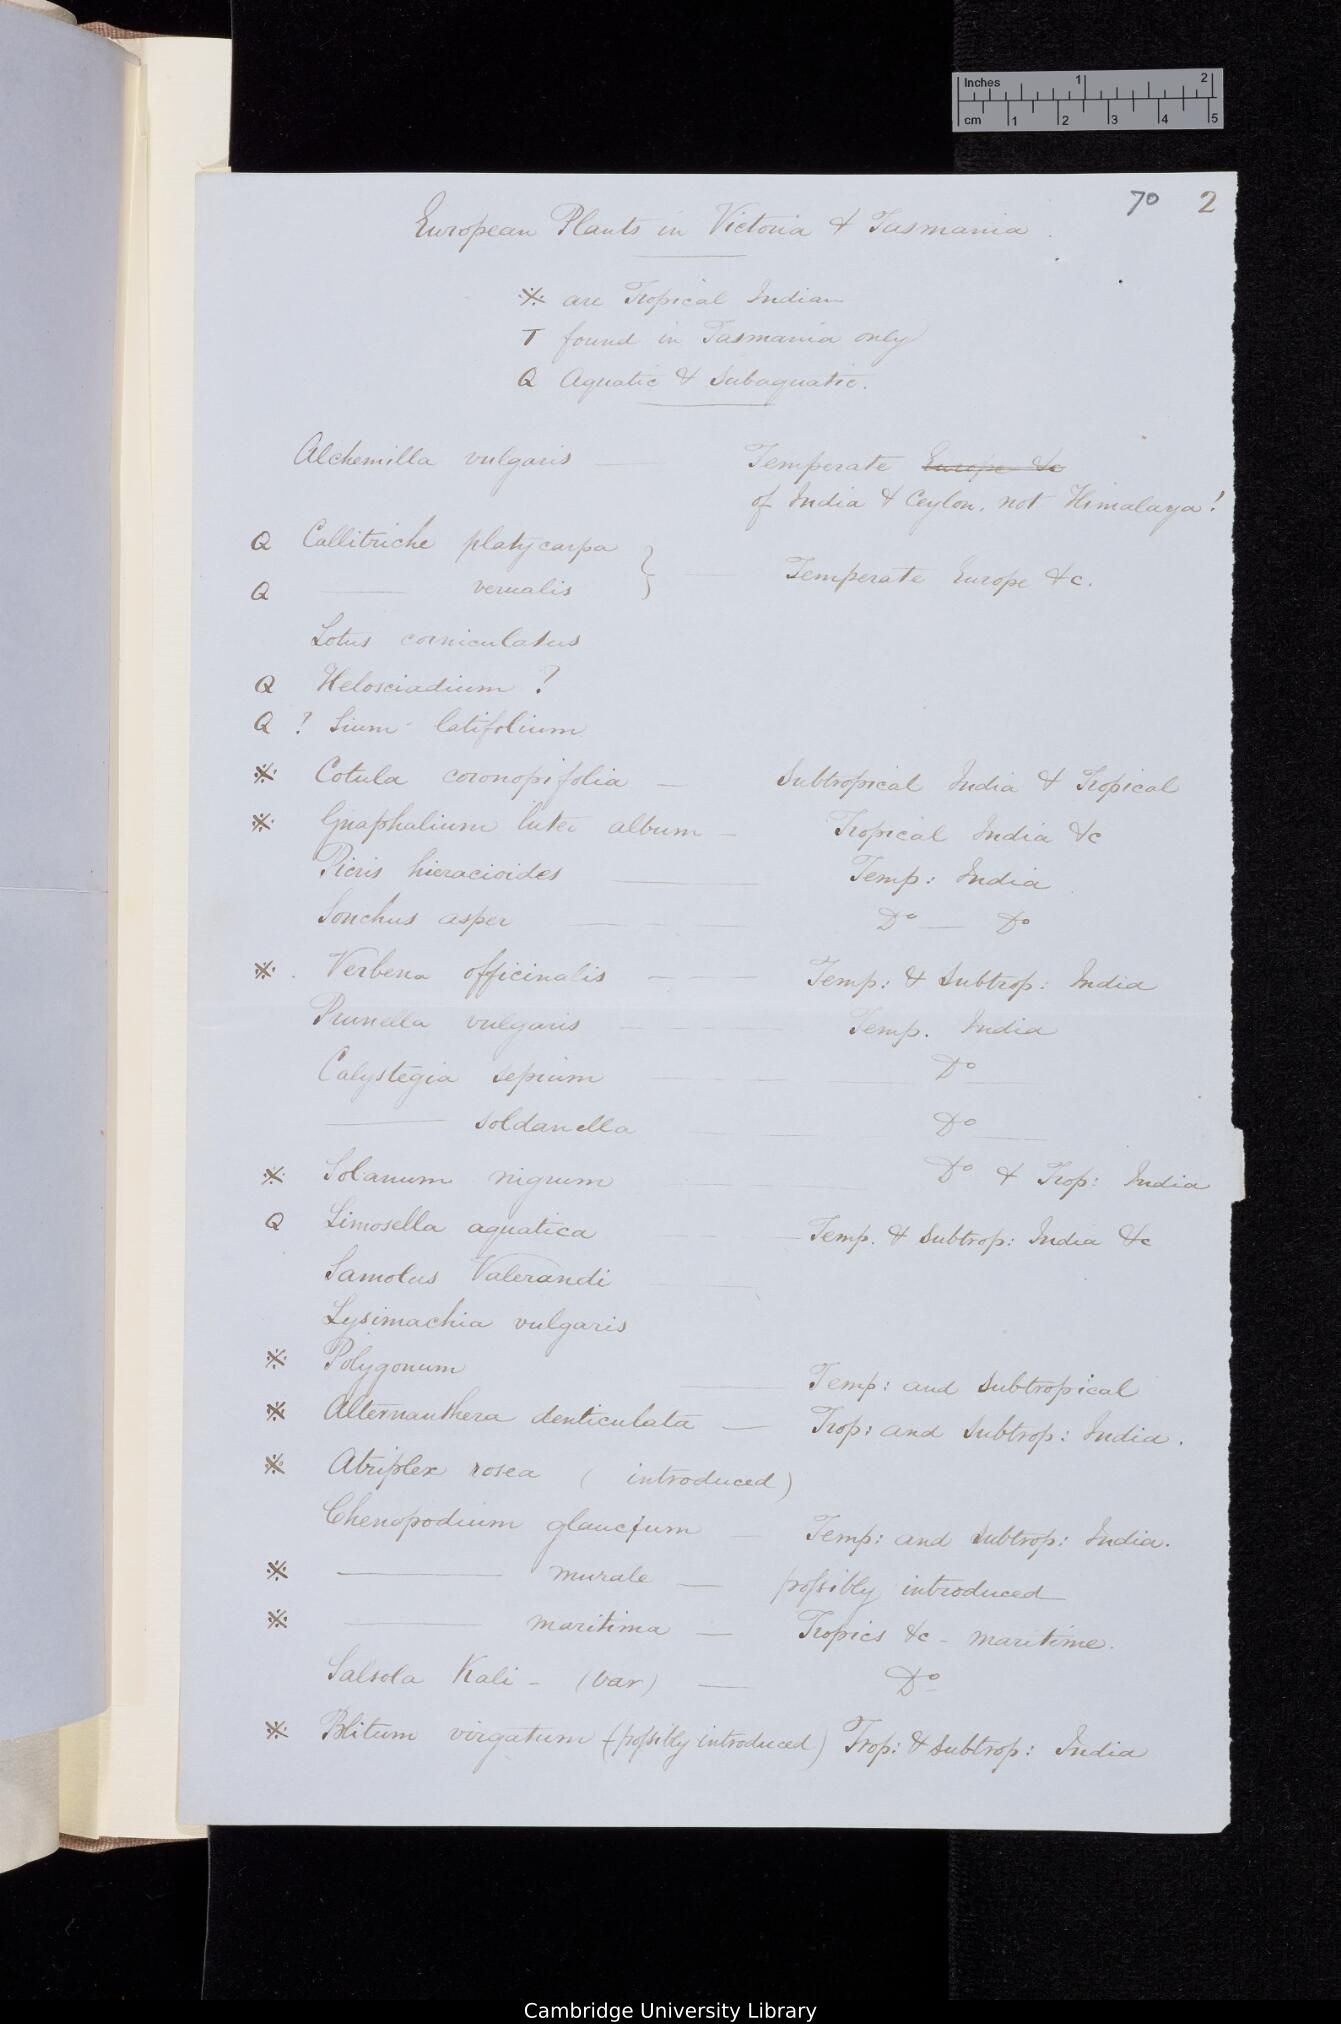 Inches 1 2
cm 1 2 3 4 5
70 2
European Plants in Victoria & Tasmania.
※ are Tropical Indian
T found in Tasmania only
Q Aquatic & Subaquatic.
Alchemilla vulgaris — Temperate Europe &c
of India & Ceylon, not Himalaya!
Q Callitriche platycarpa
Q —— vernalis } — Temperate Europe &c.
Lotus corniculatus
Q Helosciadium ?
Q ? Sium latifolium
※ Cotula coronopifolia — Subtropical India & Tropical
※ Gnaphalium luteo album — Tropical India &c
Picris hieracioides —— Temp: India
Sonchus asper — — — Do — Do
※ Verbena officinalis — — Temp: & Subtrop: India
Prunella vulgaris — — — Temp. India
Calystegia sepium — — — —— Do ——
—— soldanella — — — Do ——
※ Solanum nigrum — — — Do & Trop: India
Q Limosella aquatica — — — Temp. & Subtrop: India &c
Samolus Valerandi — —
Lysimachia vulgaris
※ Polygonum —— Temp: and Subtropical
※ Alternanthera denticulata — Trop: and Subtrop: India.
※ Atriplex rosea ( introduced)
Chenopodium glaucum — Temp: and Subtrop: India.
※ —— murale — possibly introduced
※ —— maritima — Tropics &c - maritime.
Salsola Kali - (var) — Do
※ Blitum virgatum (possibly introduced) Trop: & Subtrop: India
Cambridge University Library